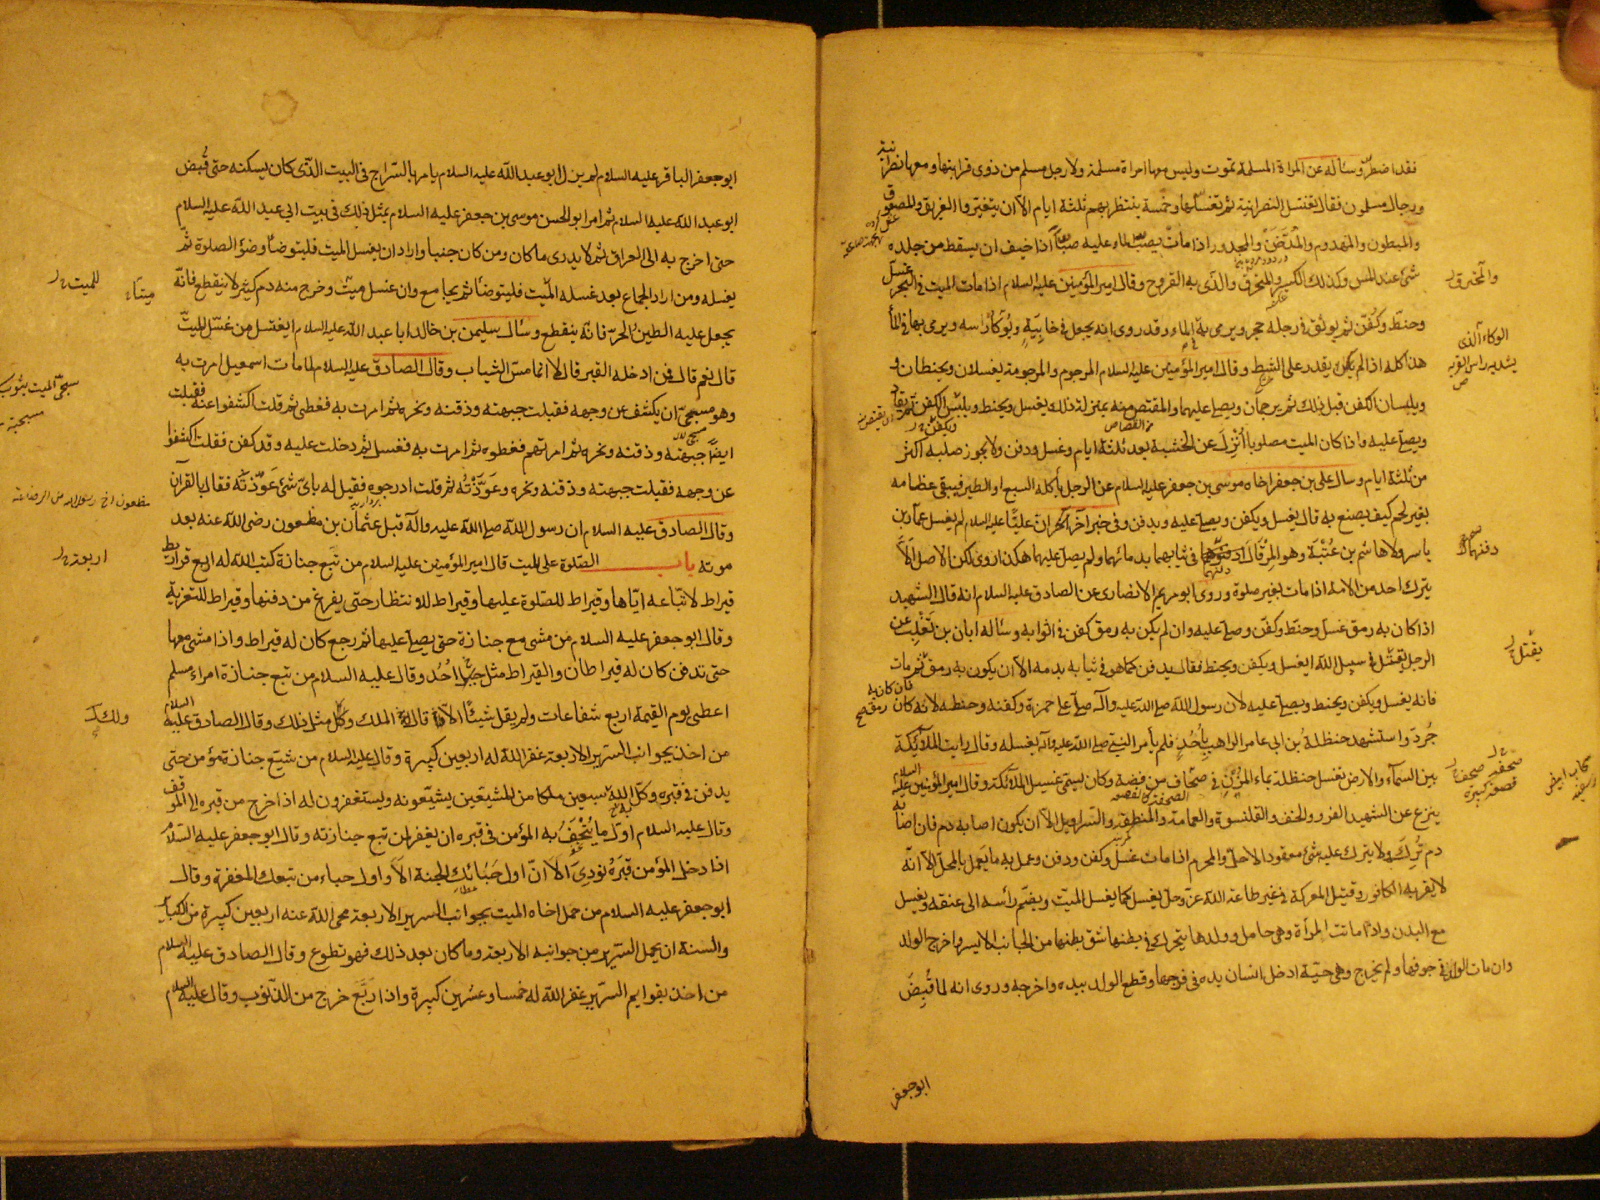 فقد اضطر وسأله عن المراة المسلمة تموت وليس معها امراة مسلمة ولا رجل مسلم من ذوى قرابتها ومعها نصرانية
ورجال مسلمون فقال تغتسل النصرانية ثم تغسلها وخمسة ينتظر بهم ثلثة ايام الا ان يتغيروا الغريق والمصعوق
والمبطون والمهدوم والمدخن والمجدور اذا مات يصب الماء عليه صبا اذا خيف ان يسقط من جلده
شئ عند المس وكذلك الكسير والمحترق والذى به القروح وقال امير المؤمنين عليه السلام اذا مات الميت فى البحر غسل
وحنط وكفن ثم يوثق فى رجله حجر ويرمى به فى الماء وقد روى انه يجعل فى خابية ويوكأ رأسه ويرمى بها فى الماء
هذا كله اذا لم يكن يقدر على الشط وقال امير المؤمنين عليه السلام المرجوم والمرجومة يغسلان ويحنطان و
ويلبسان الكفن قبل ذلك ثم يرجمان ويصلى عليهما والمقتص منه بمنزلة ذلك يغسل ويحنط ويلبس الكفن ثم يقاد
ويصلى عليه واذا كان الميت مصلوبا اُنزِل عن الخشبة بعد ثلثة ايام وغسل ودفن ولا يجوز صلبه اكثر
من ثلثة ايام وسال على بن جعفر اخاه موسى بن جعفر عليه السلام عن الرجل يأكله السبع او الطير فيبقى عظامه
بغير لحم كيف يصنع به قال يغسل ويكفن ويصلى عليه ويدفن وفى خبر آخر ان عليًا عليه السلام لم يغسل عمار بن
ياسر ولا هاشم بن عُتْبَة وهو المِرْقَال دفنهما فى ثيابهما بدمائهما ولم يصل عليهما هكذا روى لكن الاصل اَلّا
يترك احد من الامة اذا مات بغير صلوة وروى ابو مريم الانصارى عن الصادق عليه السلام انه قال الشهيد
اذا كان به رمق غسل وحنط وكفن وصلى عليه وان لم يكن به رمق كفن فى اثوابه وسأله ابان بن تَغْلِب عن
الرجل يقتل فى سبيل الله ايغسل ويكفن ويحنط فقال يدفن كما هو فى ثيابه بدمه الا ان يكون به رمق ثم مات
فانه يغسل ويكفن ويحنط ويصلى عليه لان رسول الله صلى الله عليه وآله صلى على حمزة وكفنه وحنطه لانه كان
جُرّد واستشهد حنظلة بن ابى عامر الراهب بِاُحُدٍ فلم يأمر النبى صلى الله عليه وآله بغسله وقال رايت الملائكة
بين السماء والارض تغسل حنظلة بماء المزن فى صحاف من فضة وكان يسمى غسيل الملائكة وقال امير المؤمنين عليه السلام
ينزع عن الشهيد الفرو والخف والقلنسوة والعمامة والمنطقة والسراويل الا ان يكون اصابه دم فان اصابه
دم تُرِك ولا يترك عليه شئ معقود الا حل والمحرم اذا مات غسل وكفن ودفن وعمل به ما يعمل بالمحل الا انّه
لا يقربه الكافور وقتيل المعركة فى غير طاعة الله عز وجل يغسل كما يغسل الميت ويضم رأسه الى عنقه ويغسل
مع البدن واذا ماتت المرأة وهى حامل وولدها يتحرك فى بطنها شق بطنها من الجانب الايسر واخرج الولد
وان مات الولد فى جوفها ولم يخرج وهى حيّة ادخل انسان يده فى فرجها وقطع الولد بيده واخرجه وروى انه لما قُبِضَ
ابو جعفر
والمحترق
الوكاء الذى
يشد به راس القربة
دفنهما
يقتل
فان كان به رمق
ابو جعفر الباقر عليه السلام لم يزل ابو عبد الله عليه السلام يامر بالسّراج فى البيت الذى كان يسكنه حتى قُبض
ابو عبد الله عليه السلام ثم امر ابو الحسن موسى بن جعفر عليه السلام بمثل ذلك فى بيت ابى عبد الله عليه السلام
حتى اخرج به الى العراق ثم لا يدرى ما كان ومن كان جنبا واراد ان يغسل الميت فليتوضأ وضؤ الصلوة ثمّ
يغسله ومن اراد الجماع بعد غسله الميّت فليتوضأ ثم يجامع وان غسل ميت وخرج منه دم كثير لا ينقطع فانّه
يجعل عليه الطين الحر فانه ينقطع وسأل سليمن بن خالد ابا عبد الله عليه السلام ايغتسل من غسّل الميّت
قال نعم قال فمن ادخله القبر قال لا انما مسّ الثياب وقال الصادق عليه السلام لما مات اسمعيل امرت به
وهو مسجّى ان يكشف عن وجهه فقبلت جبهته وذقنه ونحره ثم امرت به فغطى ثم قلت اكشفوا عنه فقبلت
ايضًا جبهته وذقنه ونحره ثم امرتهم فغطوه ثم امرت به فغسل ثم دخلت عليه وقد كفن فقلت اكشفوا
عن وجهه فقبلت جبهته وذقنه ونحره وعَوّذْتُه ثم قلت ادرجوه فقيل له باىّ شئ عَوّذْتَه فقال بالقرآن
وقال الصادق عليه السلام ان رسول الله صلى الله عليه وآله قبل عثمان بن مظعون رضى الله عنه بعد
موته باب الصّلوة على الميت قال امير المؤمنين عليه السلام من تَبِع جنازة كتب الله له اربع قراريط
قيراط لاتّباعه ايّاها وقيراط للصّلوة عليها وقيراط للانتظار حتى يفرغ من دفنها وقيراط للتعزية
وقال ابو جعفر عليه السلام من مشى مع جنازة حتى يصلى عليها ثم رجع كان له قيراط واذا مشى معها
حتى تدفن كان له قيراطان والقيراط مثل جبل اُحُد وقال عليه السلام من تبع جنازة امراء مسلم
اعطى يوم القيمة اربع شفاعات ولم يقل شيئًا الا قال له الملك ولك مثل ذلك وقال الصادق عليه السلام
من اخذ بجوانب السرير الاربعة غفر الله له اربعين كبيرة وقال عليه السلام من شيّع جنازة مؤمن حتى
يدفن فى قبره وكل الله به سبعين ملكا من المشيّعين يشيّعونه ويستغفرون له اذا خرج من قبره الى الموقف
وقال عليه السلام اول ما يُتْحَفُ به المؤمن فى قبره ان يغفر لمن تبع جنازته وقال ابو جعفر عليه السّلام
اذا دخل المؤمن قبرَهُ نودِىَ اَلا انّ اول حَبَائك الجنة الا واول حباء من تبعك المغفرة وقال
ابو جعفر عليه السلام من حمل اخاه الميت بجوانب السرير الاربعة محى الله عنه اربعين كبيرة من الكبائر
والسنة ان يحمل السّرير من جوانبه الاربعة وما كان بعد ذلك فهو تطوع وقال الصادق عليه السلام
من اخذ بقوايم السّرير غفر الله له خمسا وعشرين كبيرة واذا ربّع خرج من الذّنوب وقال عليه السلام
للميت
ميتا
اربعة
ولك